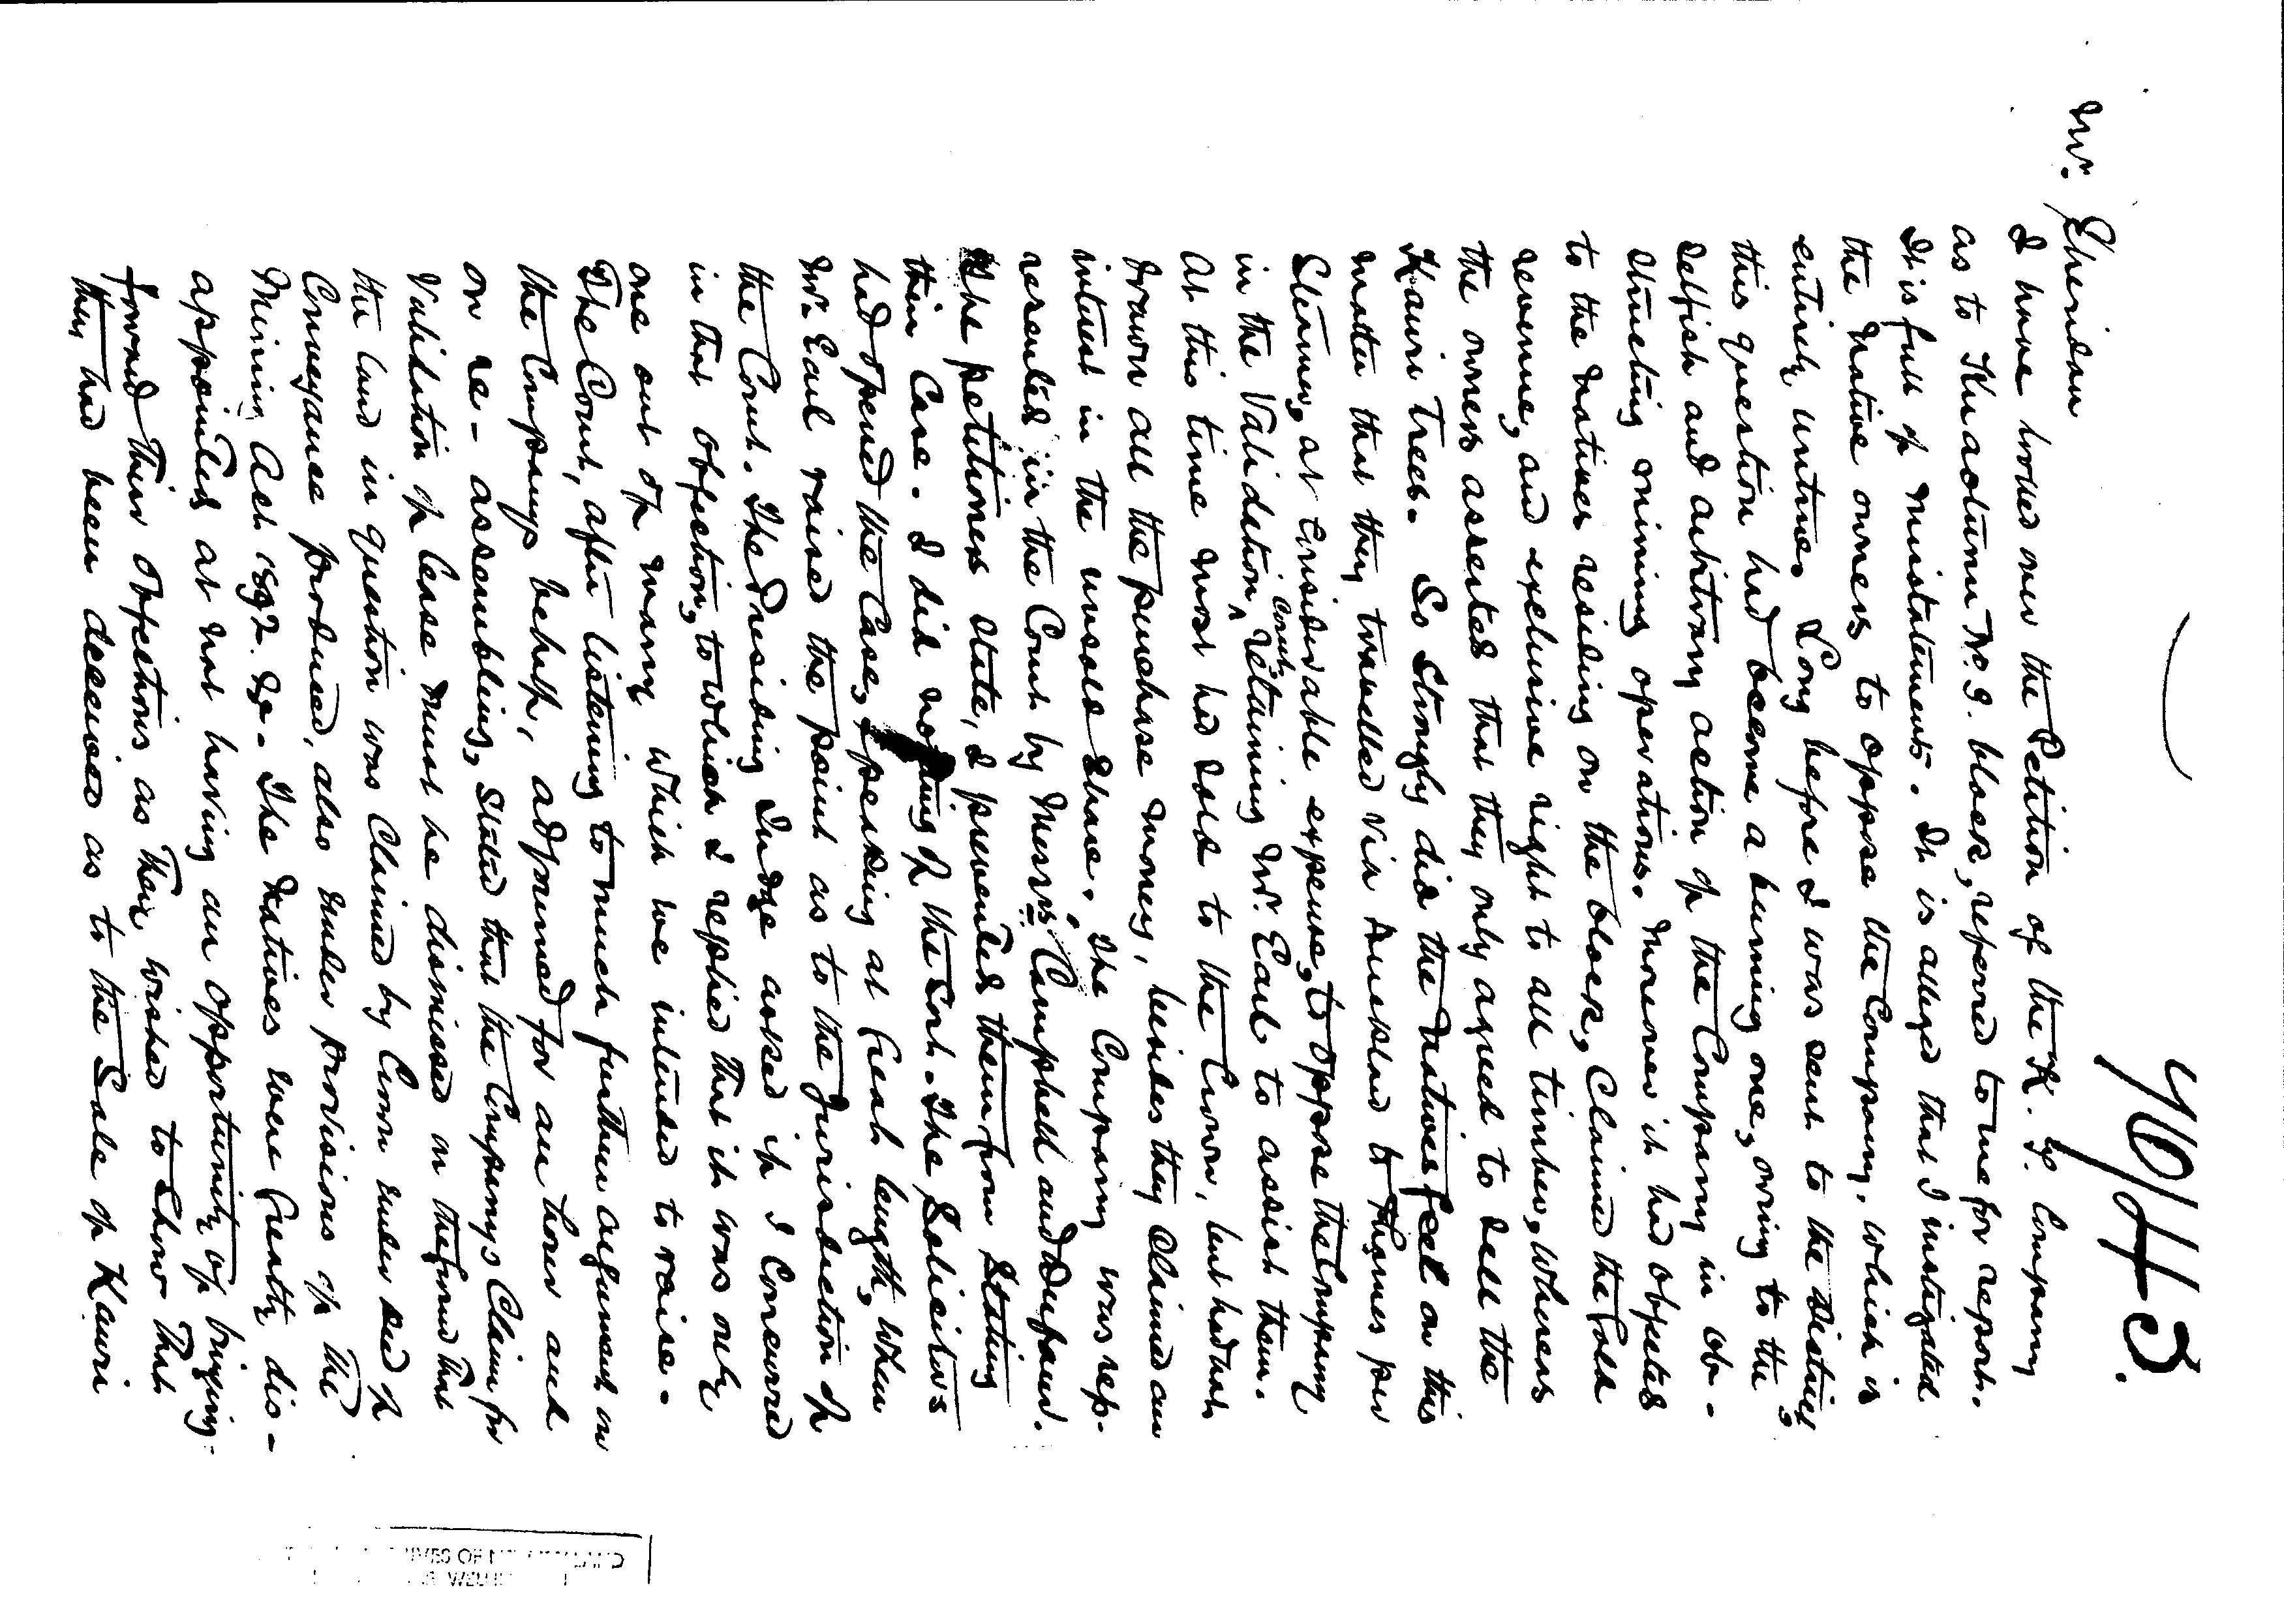 96/43.
Mr. Sheridan
I have looked over the Petition of the K. T. Company
as to Kuaotunu No. 9. block, referred to me for report.
It is full of misstatements. It is alleged that I instigated
the Native owners to oppose the Company, which is
entirely untrue. Long before I was sent to the district,
this question had become a burning one, owing to the
selfish and arbitrary action of the Company in ob-
structing mining operations. Moreover it had objected
to the Natives residing on the block, Claimed the Gold
revenue, and exclusive right to all timber, whereas
the owners asserted that they only agreed to sell the
Kauri Trees. So strongly did the Natives feel on this
matter that they travelled via Auckland to Thames per
Steamer, at Considerable expense, to oppose the Company
in the Validation Court, retaining Mr. Earl to assist them.
At this time most had sold to the Crown, but had not
drawn all the purchase money, besides they claimed an
interest in the unsold share. The Company was rep-
resented in the Court by Messrs. Campbell and Dufaur.
The petitioners state, I prevented them from stating
their Case. I did nothing of the sort. The Solicitors
had opened the Case, speaking at Great length, when
Mr. Earl raised the point as to the Jurisdiction of
the Court. The Presiding Judge asked if I Concurred
in that objection, to which I replied that it was only
one out of many which we intended to raise.
The Court, after listening to much further argument on
the Company's behalf, adjourned for an hour and
on re-assembling, stated that the Company's Claim for
Validation of lease must be dismissed on the ground that
the land in question was Claimed by Crown under deed of
Conveyance produced, also under provisions of the
Mining Act 1892. The Natives were Greatly dis-
appointed at not having an opportunity of bringing
forward their objections as they wished to show that
they had been deceived as to the Sale of Kauri